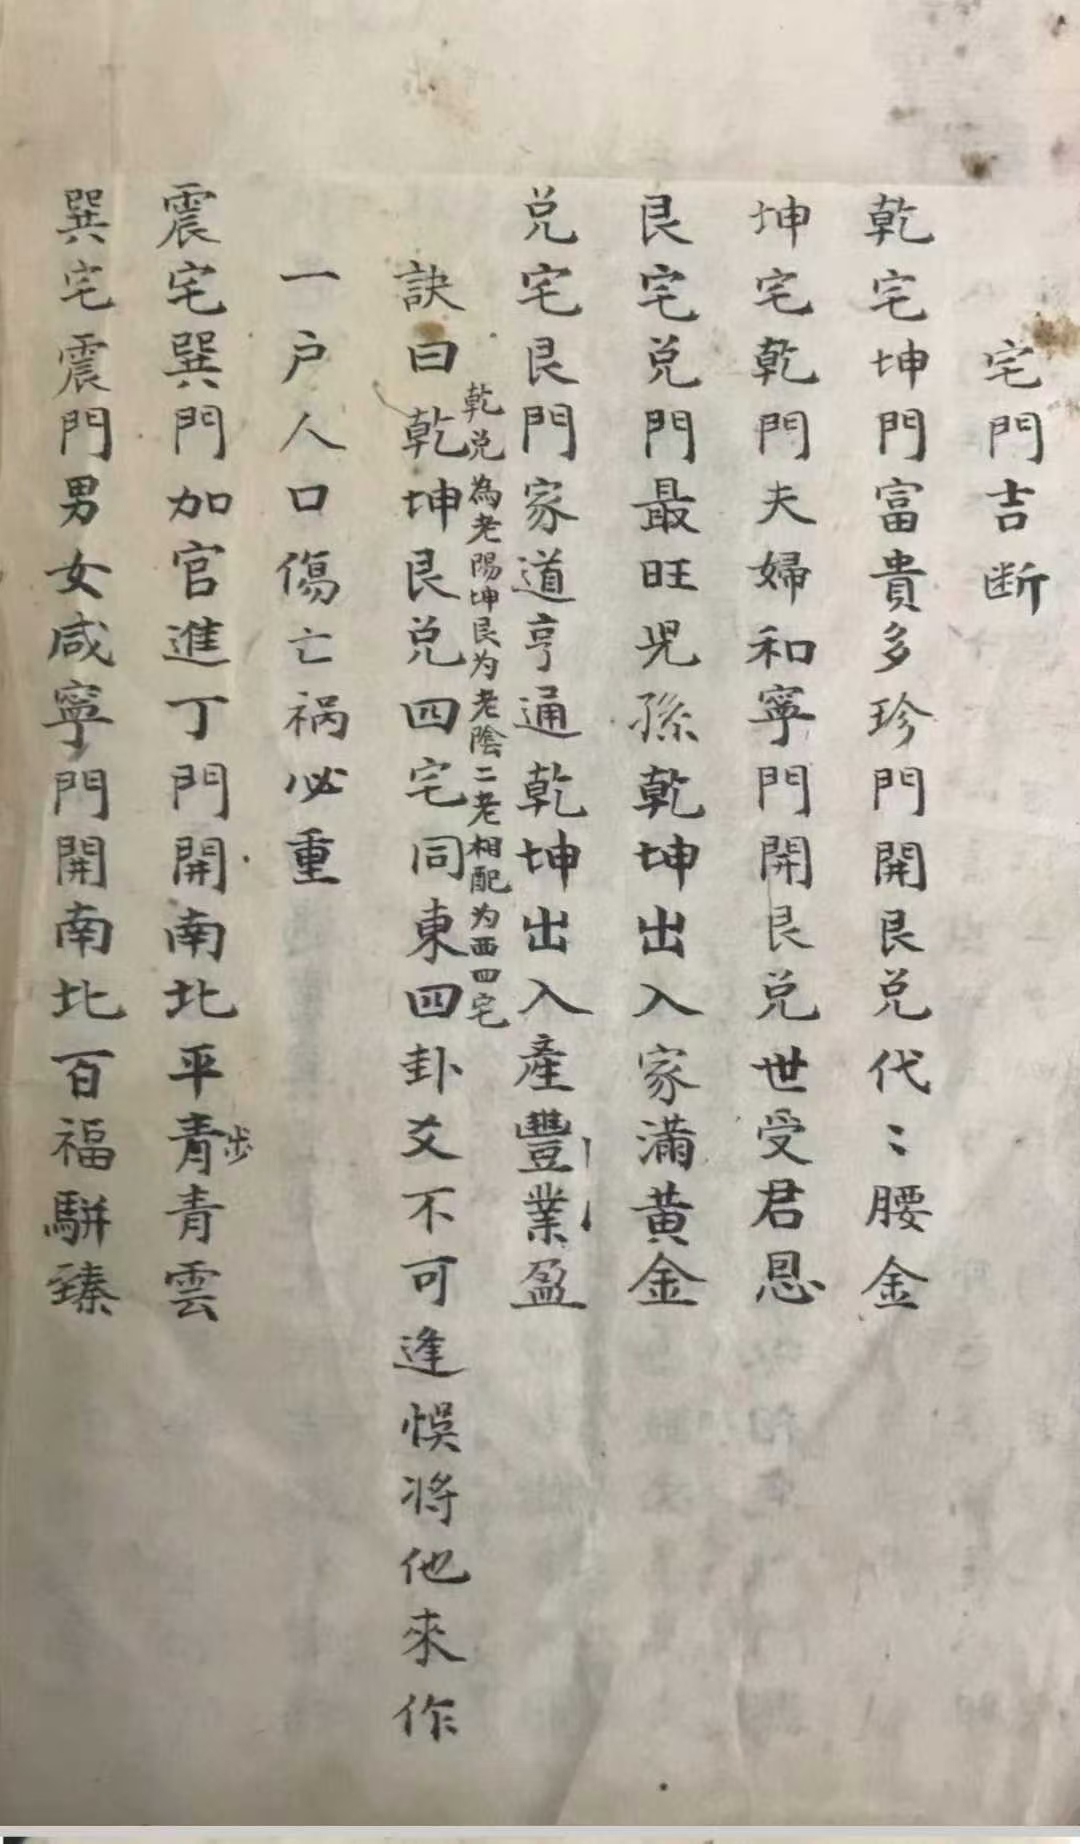 宅門吉断
乾宅坤門富貴多珍門開艮兑代〻腰金
坤宅乾門夫婦和寧門開艮兑世受君恩
艮宅兑門最旺児孫乾坤出入家滿黄金
兑宅艮門家道亨通乾坤出入產豐業盈
乾兑為老陽坤艮为老陰二老相配为西四宅
訣曰乾坤艮兑四宅同東四卦爻不可逢悞将他來作
一户人口傷亡祸必重
震宅巽門加官進丁門開南北平青青雲
步
巽宅震門男女咸寧門開南北百福駢臻